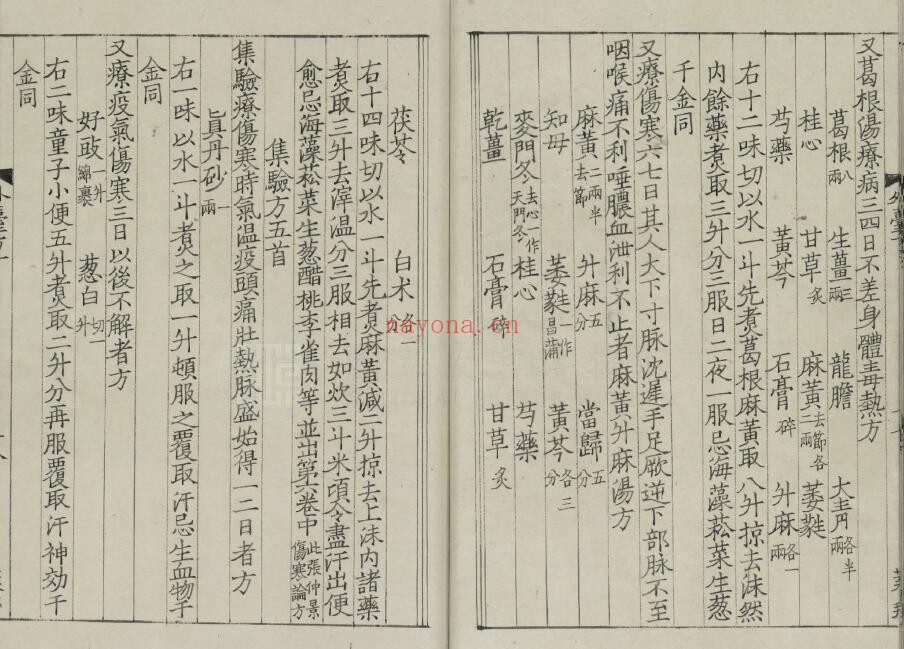 又葛根湯療病三四日不差身體毒熱方
葛根八兩 生薑三兩 龍膽 大青各半兩
桂心 甘草炙 麻黃去節各二兩 萎蕤
芍藥 黃芩 石膏碎 升麻各一兩
右十二味切以水一斗先煮葛根麻黃取八升掠去沫然
內餘藥煮取三升分三服日二夜一服忌海藻菘菜生葱
千金同
又療傷寒六七日其人大下寸脉沈遲手足厥逆下部脉不至
咽喉痛不利唾膿血泄利不止者麻黃升麻湯方
麻黃二兩半去節 升麻五分 當歸五分
知母 萎蕤一作菖蒲 黃芩各三分
麥門冬去心一作天門冬 桂心 芍藥
乾薑 石膏碎 甘草炙
茯苓 白朮各一分
右十四味切以水一斗先煮麻黃減二升掠去上沫內諸藥
煮取三升去滓溫分三服相去如炊三斗米頃令盡汗出便
愈忌海藻菘菜生葱醋桃李雀肉等並出第六卷中此張仲景傷寒論方
集驗方五首
集驗療傷寒時氣溫疫頭痛壯熱脉盛始得一二日者方
真丹砂一兩
右一味以水一斗煮之取一升頓服之覆取汗忌生血物千
金同
又療疫氣傷寒三日以後不解者方
好豉一升綿裹 葱白切一升
右二味童子小便五升煮取二升分再服覆取汗神効千
金同
nayona.cn